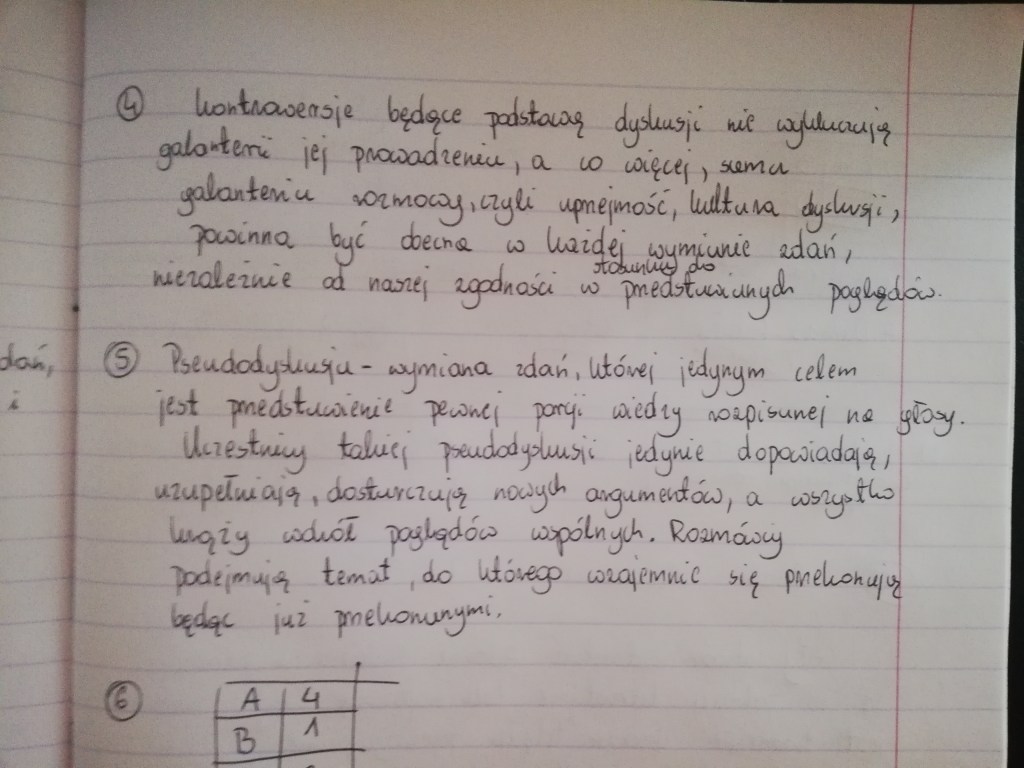 ④ Kontrowersje będące podstawą dyskusji nie wykluczają
galanterii jej prowadzeniu, a co więcej, sama
galanteria rozmowy, czyli uprzejmość, kultura dyskusji,
powinna być obecna w każdej wymianie zdań,
stosunku do
niezależnie od naszej zgodności w przedstawianych poglądów.
dań,
i
⑤ Pseudodyskusja - wymiana zdań, której jedynym celem
jest przedstawienie pewnej porcji wiedzy rozpisanej na głosy.
Uczestnicy takiej pseudodyskusji jedynie dopowiadają,
uzupełniają, dostarczają nowych argumentów, a wszystko
krąży wokół poglądów wspólnych. Rozmówcy
podejmują temat, do którego wzajemnie się przekonują
będąc już przekonanymi.
⑥ A 4
B 1